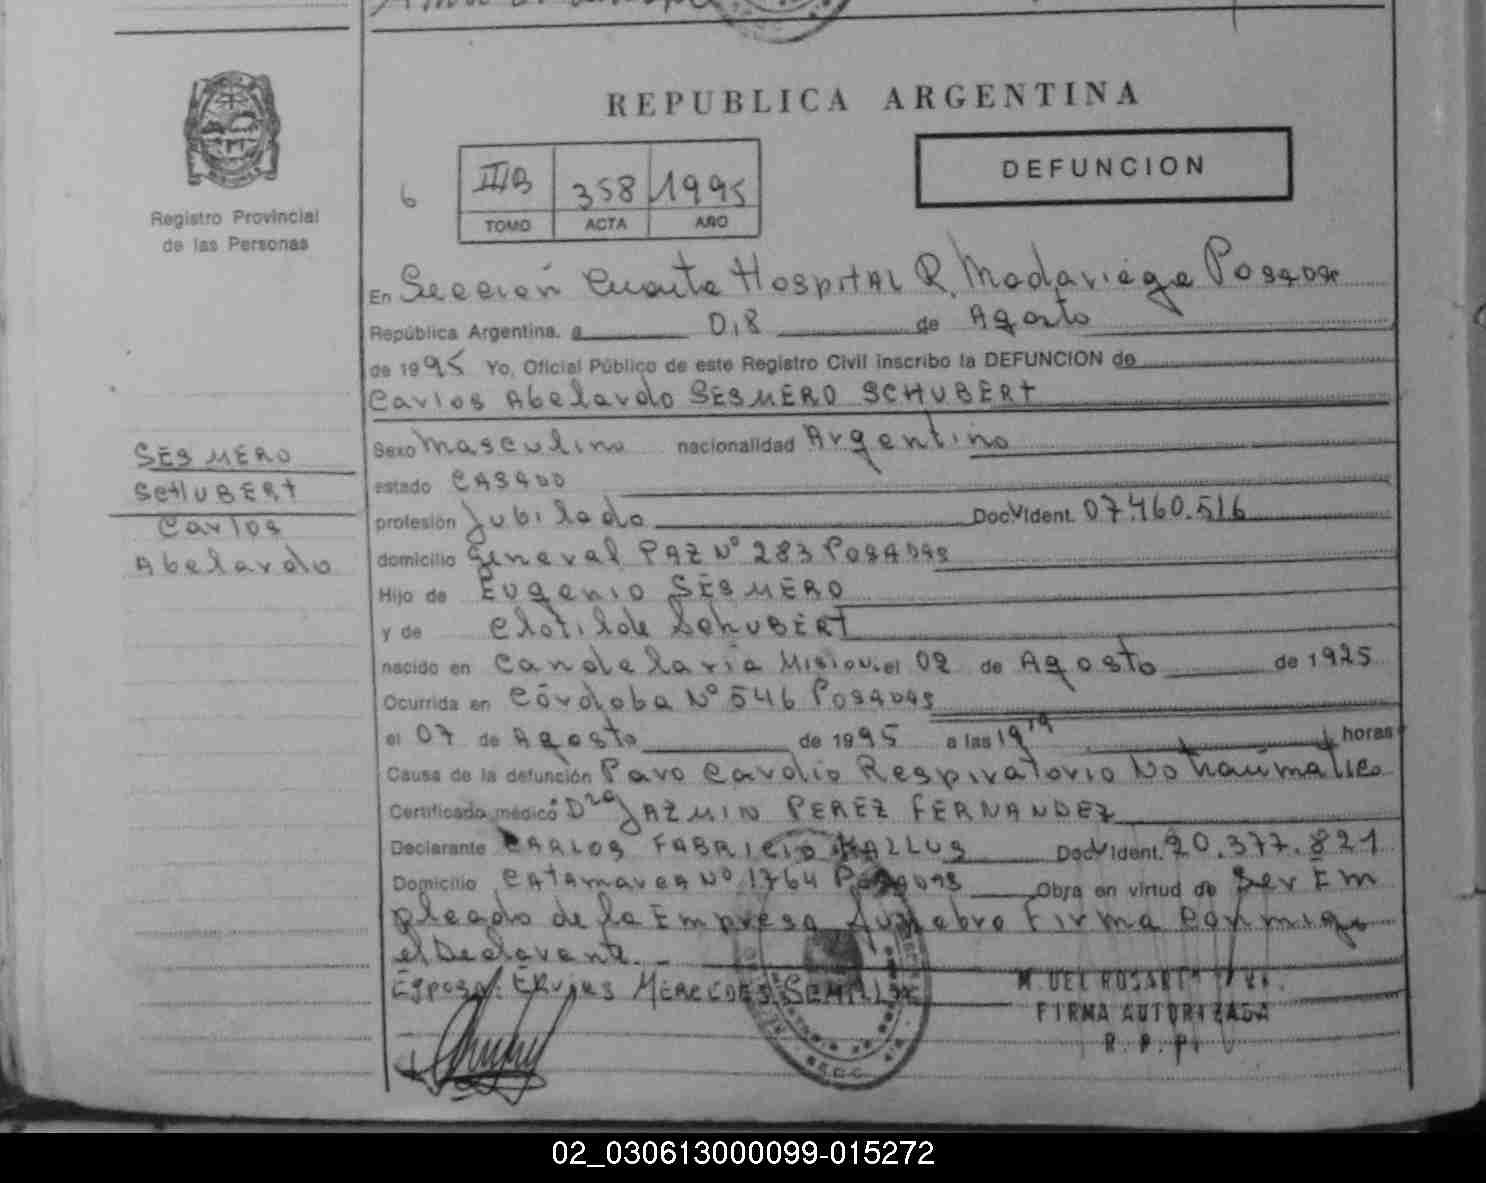 REPUBLICA ARGENTINA
DEFUNCION
6
III/B 358 1995
TOMO ACTA AÑO
Registro Provincial
de las Personas
En Sección Cuarta Hospital R. Madariaga Posadas
República Argentina, a 08 de Agosto
de 1995 Yo, Oficial Público de este Registro Civil inscribo la DEFUNCION de
Carlos Abelardo SESMERO SCHUBERT
SESMERO
SCHUBERT
Carlos
Abelardo
Sexo Masculino nacionalidad Argentino
estado CASADO
profesión Jubilado Doc. Ident. 07.460.516
domicilio General PAZ Nº 283 POSADAS
Hijo de Eugenio SESMERO
y de Clotilde SchUBERT
nacido en Candelaria Mision. el 02 de Agosto de 1925
Ocurrida en Córdoba Nº 546 POSADAS
el 07 de Agosto de 1995 a las 19 horas
Causa de la defunción Paro Cardio Respiratorio No traumatico
Certificado médico Dra JAZMIN PEREZ FERNANDEZ
Declarante CARLOS FABRICIO Doc. Ident. 20.377.821
Domicilio CATAMARCA Nº 1764 POSADAS Obra en virtud de Ser Em
pleado de la Empresa Funebre Firma Conmigo
el Declarante.
Esposa: MERCEDES
FIRMA AUTORIZADA
R. P. P.
02_030613000099-015272